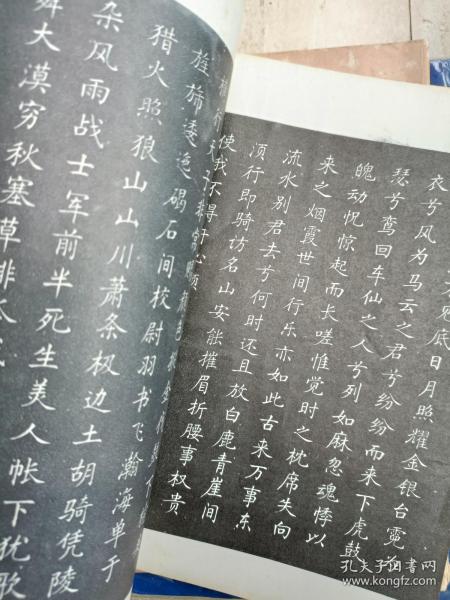 见底日月照耀金银台霓为
衣兮风为马云之君兮纷纷而来下虎鼓
瑟兮鸾回车仙之人兮列如麻忽魂悸以
魄动怳惊起而长嗟惟觉时之枕席失向
来之烟霞世间行乐亦如此古来万事东
流水别君去兮何时还且放白鹿青崖间
须行即骑访名山安能摧眉折腰事权贵
使我不得开心颜
旌旆逶迤碣石间校尉羽书飞瀚海单于
猎火照狼山山川萧条极边土胡骑凭陵
杂风雨战士军前半死生美人帐下犹歌
舞大漠穷秋塞草腓
孔夫子旧书网